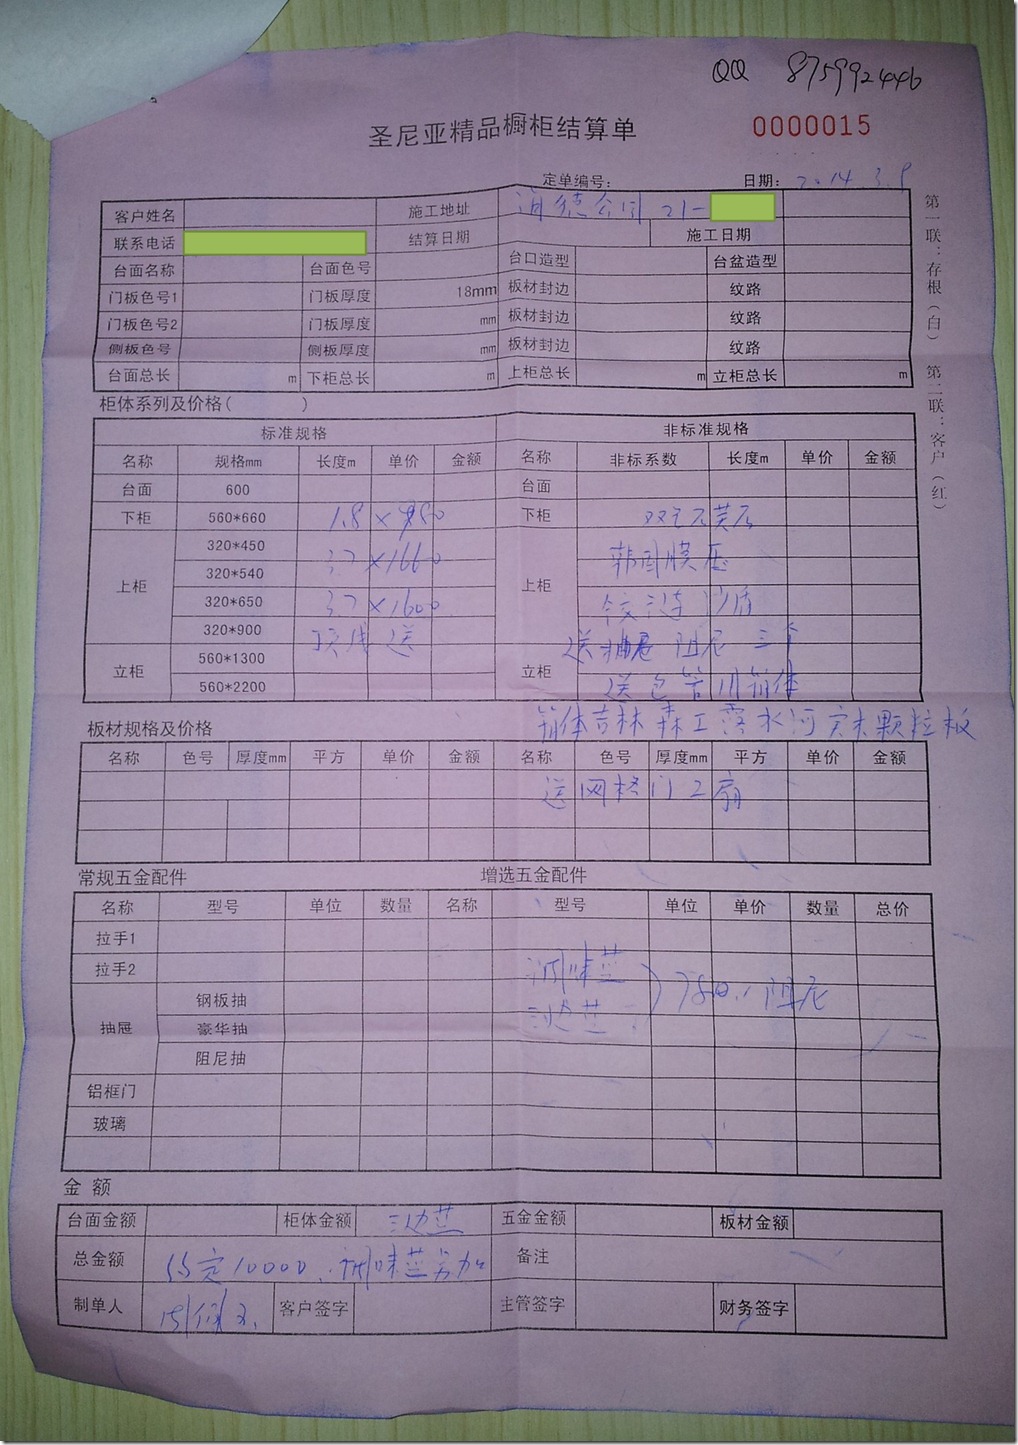 QQ 875992446
圣尼亚精品橱柜结算单 0000015
定单编号： 日期： 2014.3.9
客户姓名 施工地址 润德公园 21-
联系电话 结算日期 施工日期
台面名称 台面色号 台口造型 台盆造型
门板色号1 门板厚度 18mm 板材封边 纹路
门板色号2 门板厚度 mm 板材封边 纹路
侧板色号 侧板厚度 mm 板材封边 纹路
台面总长 m 下柜总长 m 上柜总长 m 立柜总长 m
柜体系列及价格( )
标准规格 非标准规格
名称 规格mm 长度m 单价 金额 名称 非标系数 长度m 单价 金额
台面 600 台面
下柜 560*660 1.8× 下柜
上柜 320*450 上柜 韩国膜压
320*540 3.7×1660
320*650 3.7×1600
320*900 顶线 送
立柜 560*1300 立柜 送 抽屉 阻尼 三个
560*2200 送包管用箱体
箱体吉林森工露水河实木颗粒板
板材规格及价格
名称 色号 厚度mm 平方 单价 金额 名称 色号 厚度mm 平方 单价 金额
送网格门2扇
常规五金配件 增选五金配件
名称 型号 单位 数量 名称 型号 单位 单价 数量 总价
拉手1
拉手2 调味篮
抽屉 钢板抽 阻尼
豪华抽 三边篮
阻尼抽
铝框门
玻璃
金 额
台面金额 柜体金额 三边篮 五金金额 板材金额
总金额 10000. 调味篮另加 备注
制单人 客户签字 主管签字 财务签字
第一联：存根（白） 第二联：客户（红）